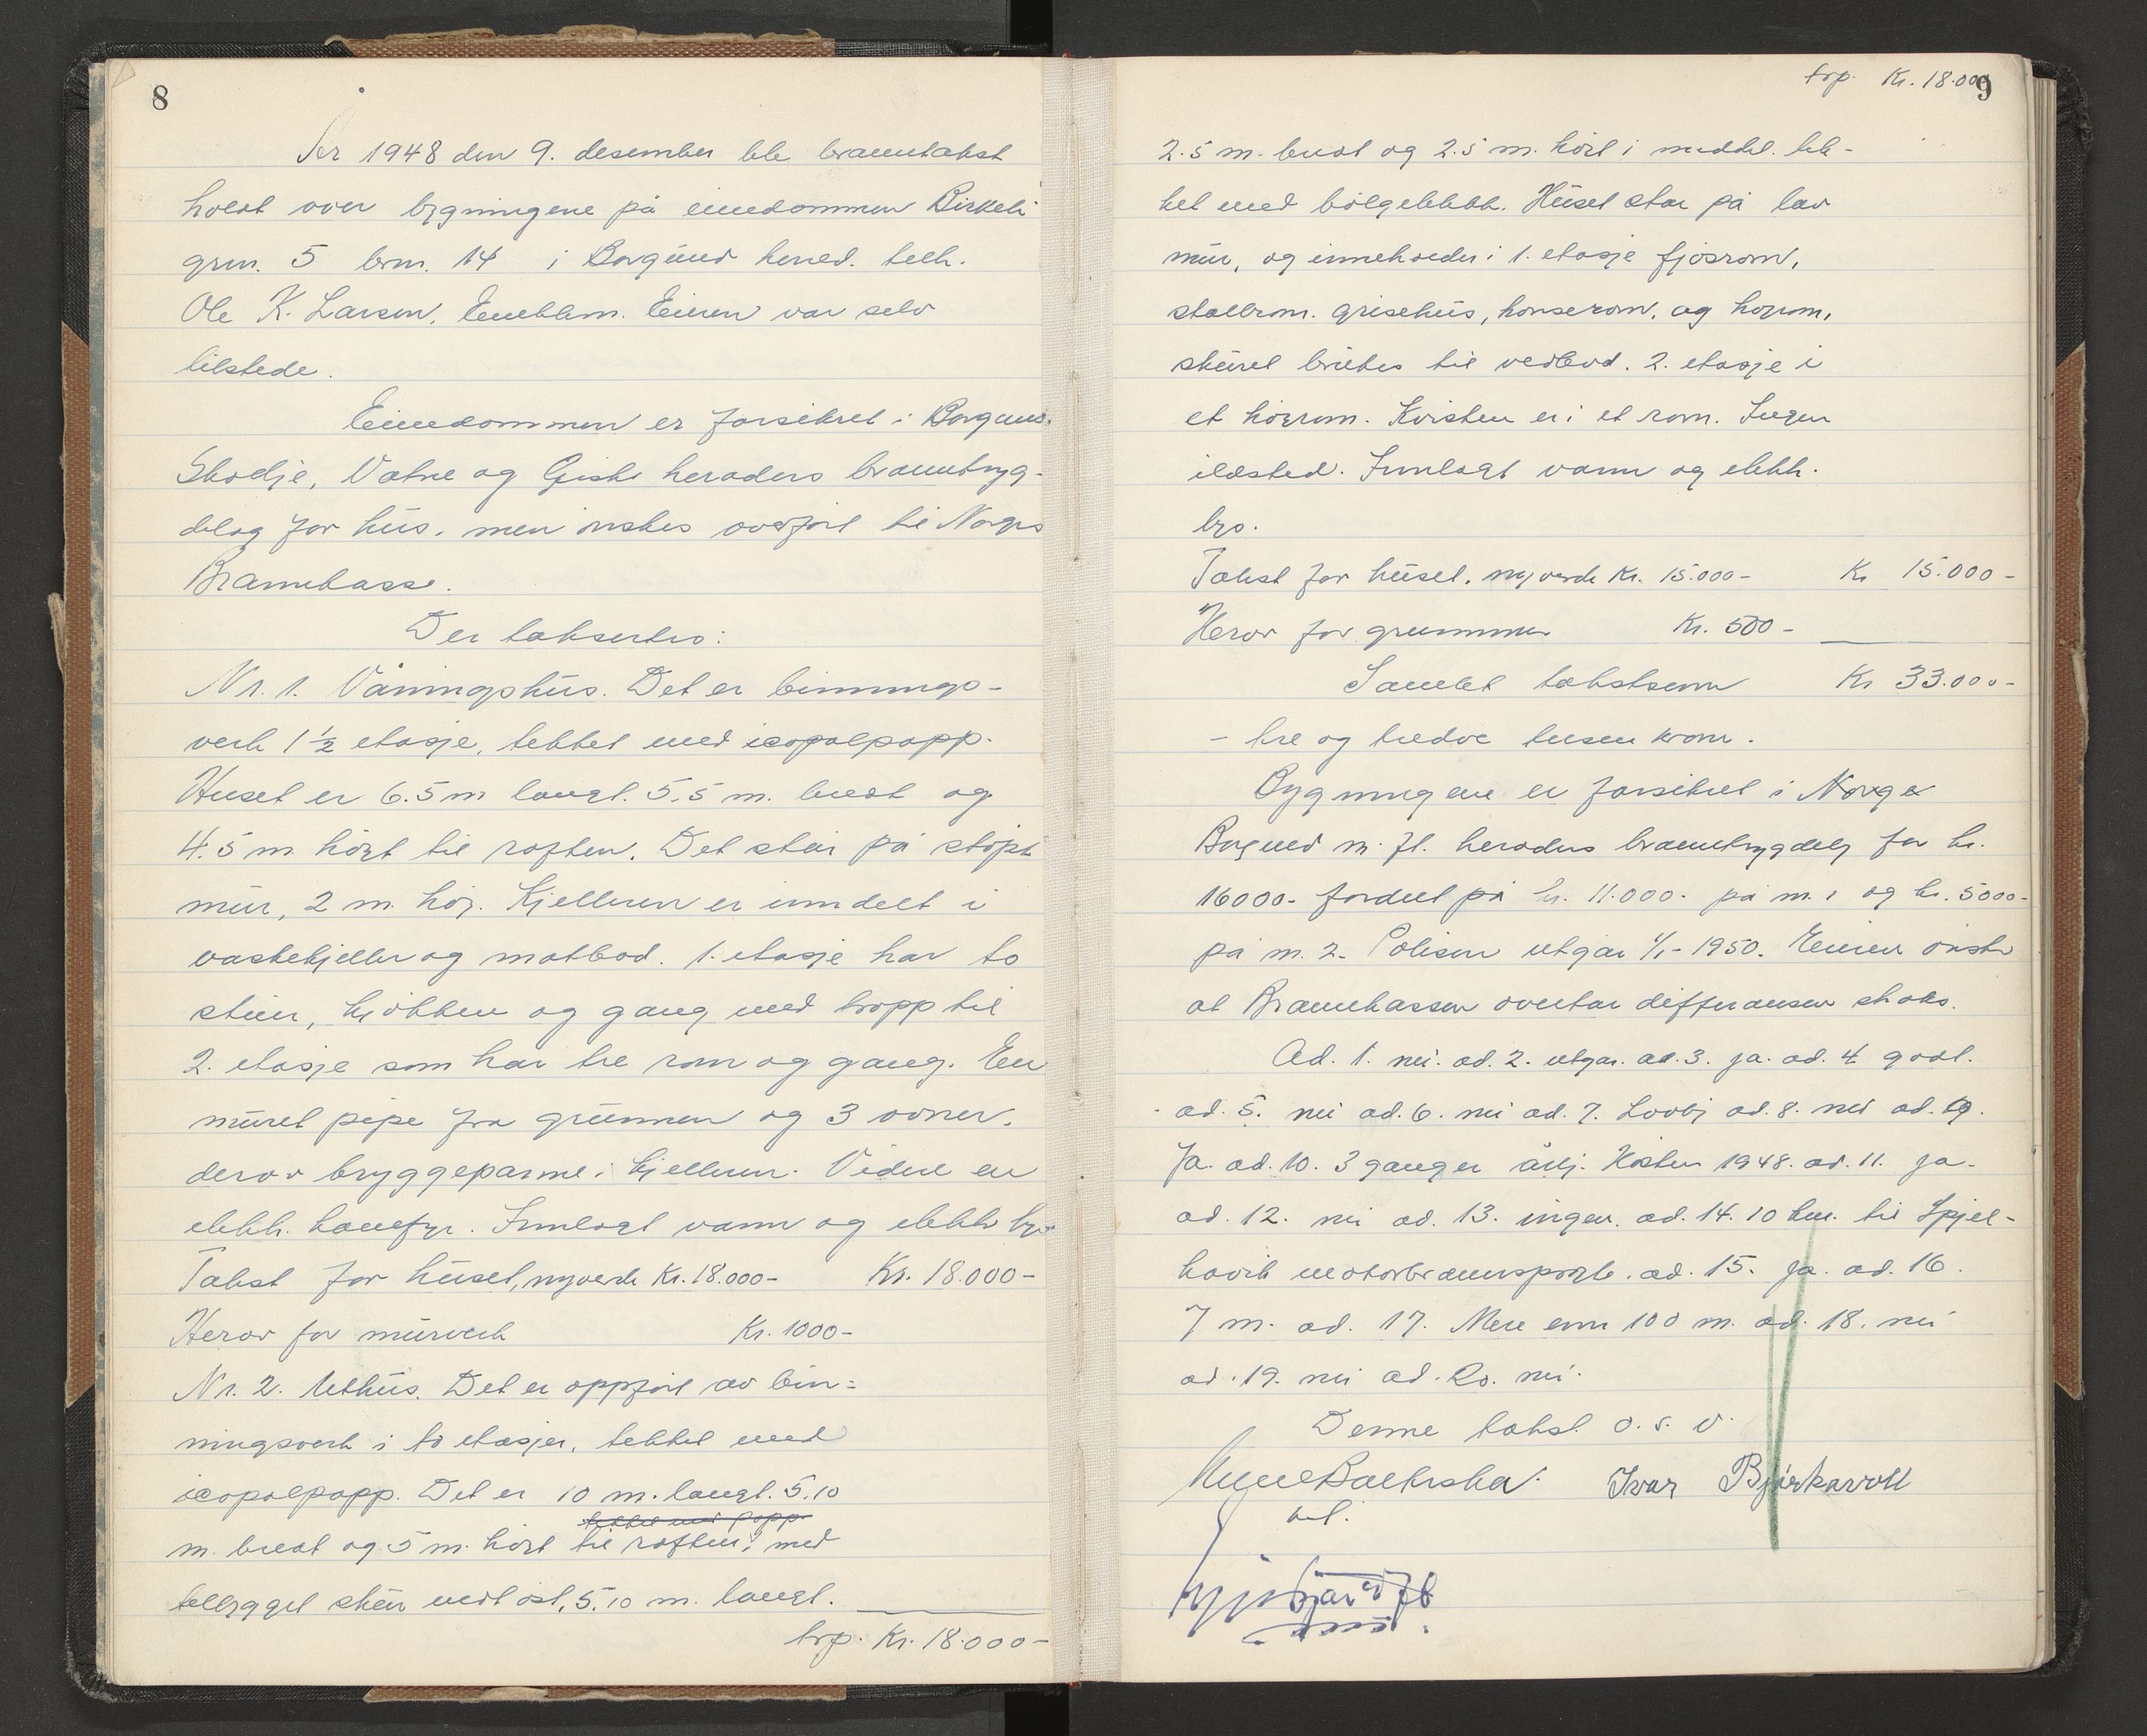 8
År 1948 den 9. desember ble branntakst
holdt over bygningene på eiendommen Birkeli
grn. 5 brn. 14 i Borgund herred. tilh.
Ole K. Larsen, Emblem. Eieren var selv
tilstede.
Eiendommen er forsikret i Borgund.
Skodje, Vatne og Giske heraders branntryg-
delag for hus. men ønskes overført til Norges
Brannkasse.
Der takseres:
Nr. 1. Våningshus. Det er binnings-
verk 1 1/2 etasje, tekket med icopalpapp.
Huset er 6.5 m langt. 5.5 m. bredt og
4.5 m. høgt til raften. Det står på støpt
mur, 2 m. høg. Kjelleren er inndelt i
vaskekjeller og matbod. 1. etasje har to
stuer, kjøkken og gang med tropp til
2. etasje som har tre rom og gang. En
muret pipe fra grunnen og 3 ovner.
derav bryggepanne i kjelleren. Videre en
elekk. komfyr. Innlagt vann og elekk lys
Takst for huset, nyverdi Kr. 18.000- Kr. 18.000-
Herav for murverk Kr. 1000-
Nr. 2. Uthus. Det er oppført av bin-
ningsverk i to etasjer, tekket med
icopalpapp. Det er 10 m. langt. 5.10
tekket med papp.
m. bredt og 5 m. høgt til raften, med
tilbygget skur mot øst, 5.10 m. langt.
trp. Kr. 18.000-
trp. Kr. 18.000
9
2.5 m. bredt og 2.5 m. høgt i middel. tek-
ket med bølgeblekk. Huset står på lav
mur, og inneholder i 1. etasje fjøsrom,
stallrom. grisehus, hønserom, og høyrom,
skuret brukes til vedbod. 2. etasje i
et høyrom. Kvisten er i et rom. Ingen
ildsted. Innlagt vann og elekk.
lys.
Takst for huset, nyverdi Kr. 15.000- Kr 15.000-
Herav for grunnmur Kr. 500-
Samlet takstsum Kr 33.000-
- tre og tredve tusen kroner.
Bygningene er forsikret i Norge
Borgund m. fl. heraders branntrygdelag for kr.
16000- fordelt på kr. 11.000- på nr. 1 og kr. 5000-
på nr. 2. Polisen utgår 1/1-1950. Eieren ønsker
at Brannkassen overtar differansen straks.
Ad. 1. nei. ad. 2. utgår. ad. 3. ja. ad. 4 godt.
ad. 5. nei ad. 6. nei ad. 7. Lovlig ad. 8. nei ad. 9.
Ja. ad. 10. 3 ganger årlig. Høsten 1948. ad. 11. ja.
ad. 12. nei ad. 13. ingen. ad. 14. 10 km. til Spjel-
kavik motorbrannsprøyte. ad. 15. ja. ad. 16.
7 m. ad. 17. Mere enn 100 m. ad. 18. nei
ad. 19. nei ad. 20. nei.
Denne takst o. s. v.
Ivar Bjørkavoll